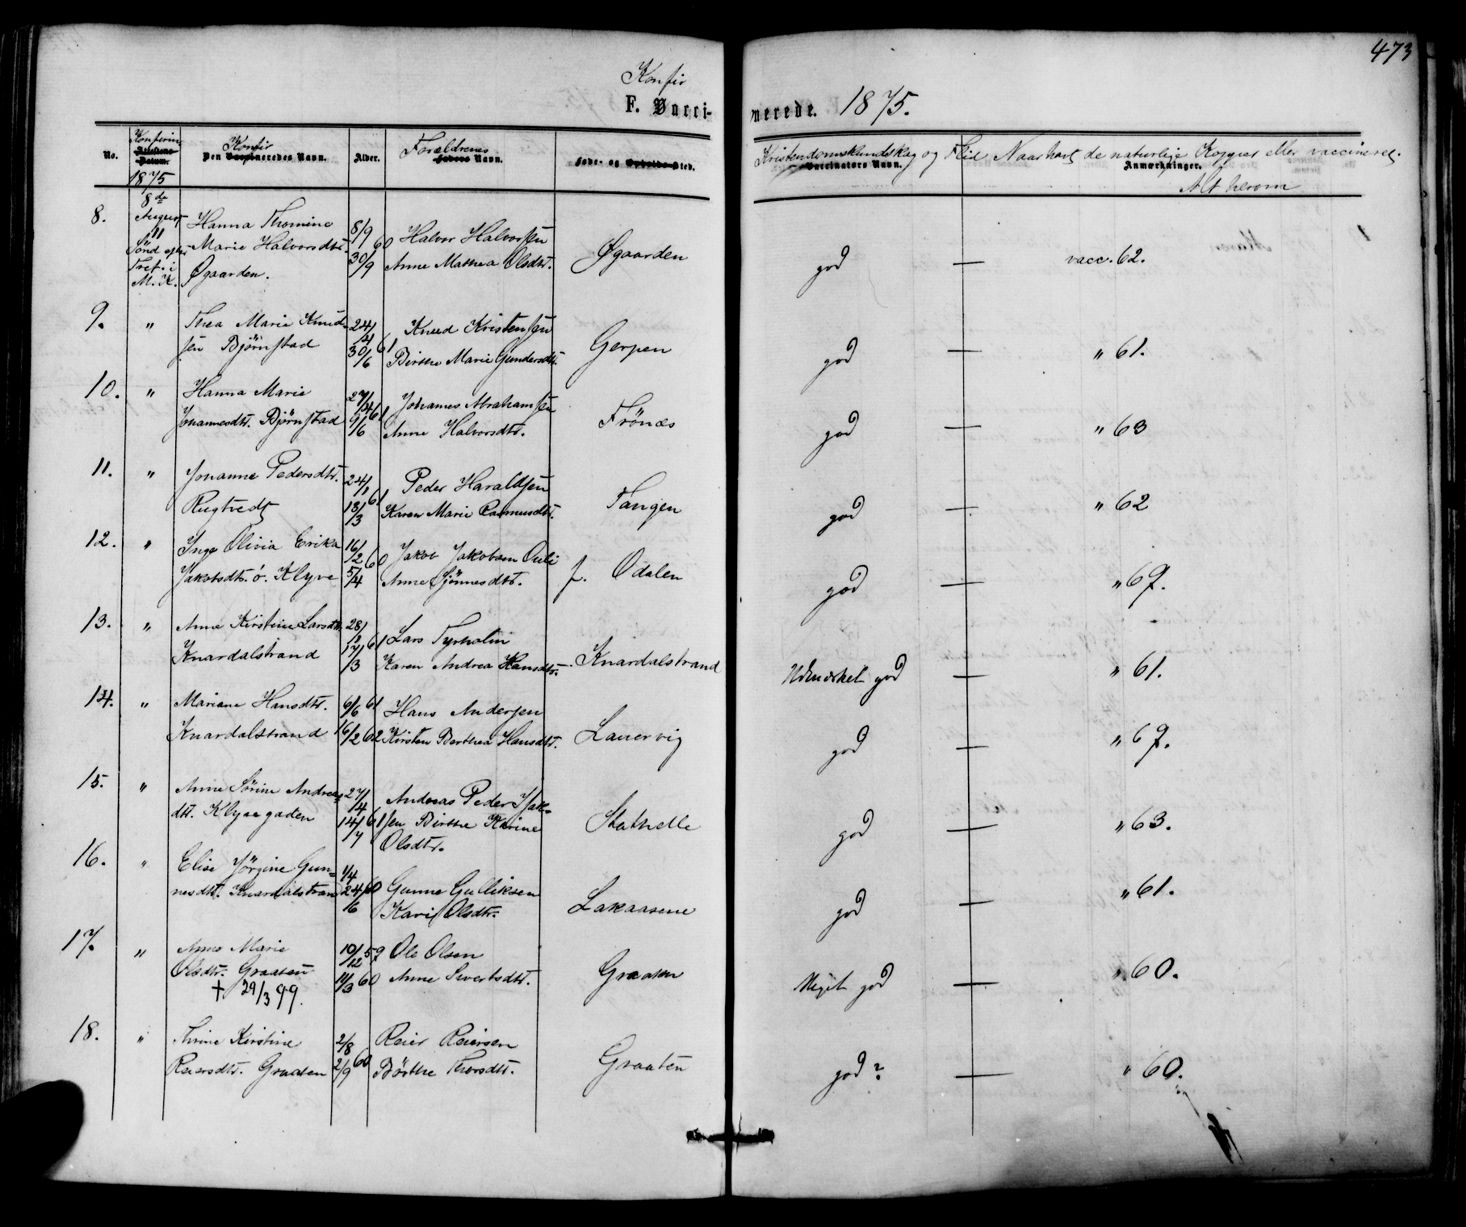 473
Konfir
F. Vacci-nerede. 1875.
No. Konfirm. Attestens Datum. Konfir Den Vaccineredes Navn. Alder. Forældrenes Faders Navn. Føde- og Opholds-Sted. Kristendomskundskap og Flid Vaccinators Navn. Naar havt de naturlige Kopper eller vaccineret. Anmærkninger.
1875 Alt herom
8. 8de August 11 Sønd efter Tref. i M. K. Hanna Thomine Marie Halvorsdtr. Øgaarden. 8/9 60 30/9 Halvor Halvorsen Anne Mathea Olsdtr. Øgaarden god — vacc. 62.
9. " Thea Marie Knud- sen Bjørnstad 24/4 61 30/6 Knud Kristensen Birthe Marie Gundersdtr. Gerpen god — " 61.
10. " Hanna Marie Johannesdtr. Bjørnstad 27/4 61 9/6 Johannes Abrahamsen Anne Halvorsdtr. Frönæs god — " 63
11. " Johanne Pedersdtr. Rugtvedt 24/1 61 13/3 Peder Haraldsen Karen Marie Rasmusdtr. Tangen god — " 62
12. " Inga Olivia Erika Jakobsdtr. ö. Klyve 16/2 60 5/4 Jakob Jakobsen Anne Sjönnesdtr. f. Odalen god — " 67.
13. " Anne Kirstine Larsdtr. Knardalstrand 28/1 61 17/3 Lars Tyrholm Karen Andrea Hansdtr. Knardalstrand Udmærket god — " 61.
14. " Mariane Hansdtr. Knardalstrand 6/6 61 16/2 62 Hans Andersen Kirsten Berthea Hansdtr. Laurvig god — " 67.
15. " Anne Sörine Andreas dtr. Klyvegaden 27/4 61 14/7 Andreas Peder Isak- sen Birthe Karine Olsdtr. Stathelle god — " 63.
16. " Elise Jörgine Gun- nesdtr. Knardalstrand 1/4 60 24/6 Gunne Gulliksen Kari Olsdtr. Lakaasene god — " 61.
17. " Anne Marie Olsdtr. Graaten 10/12 59 11/3 60 Ole Olsen Anne Sivertsdtr. Graaten Meget god — " 60.
† 29/3 99.
18. " Thrine Kirstine Reiersdtr. Graaten 2/8 60 2/9 Reier Reiersen Börthe Thorsdtr. Graaten god? — " 60.